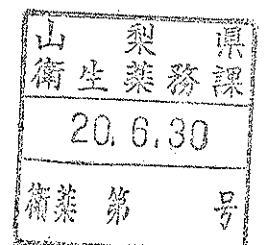 山梨県
衛生薬務課
20.6.30
衛薬 第 号